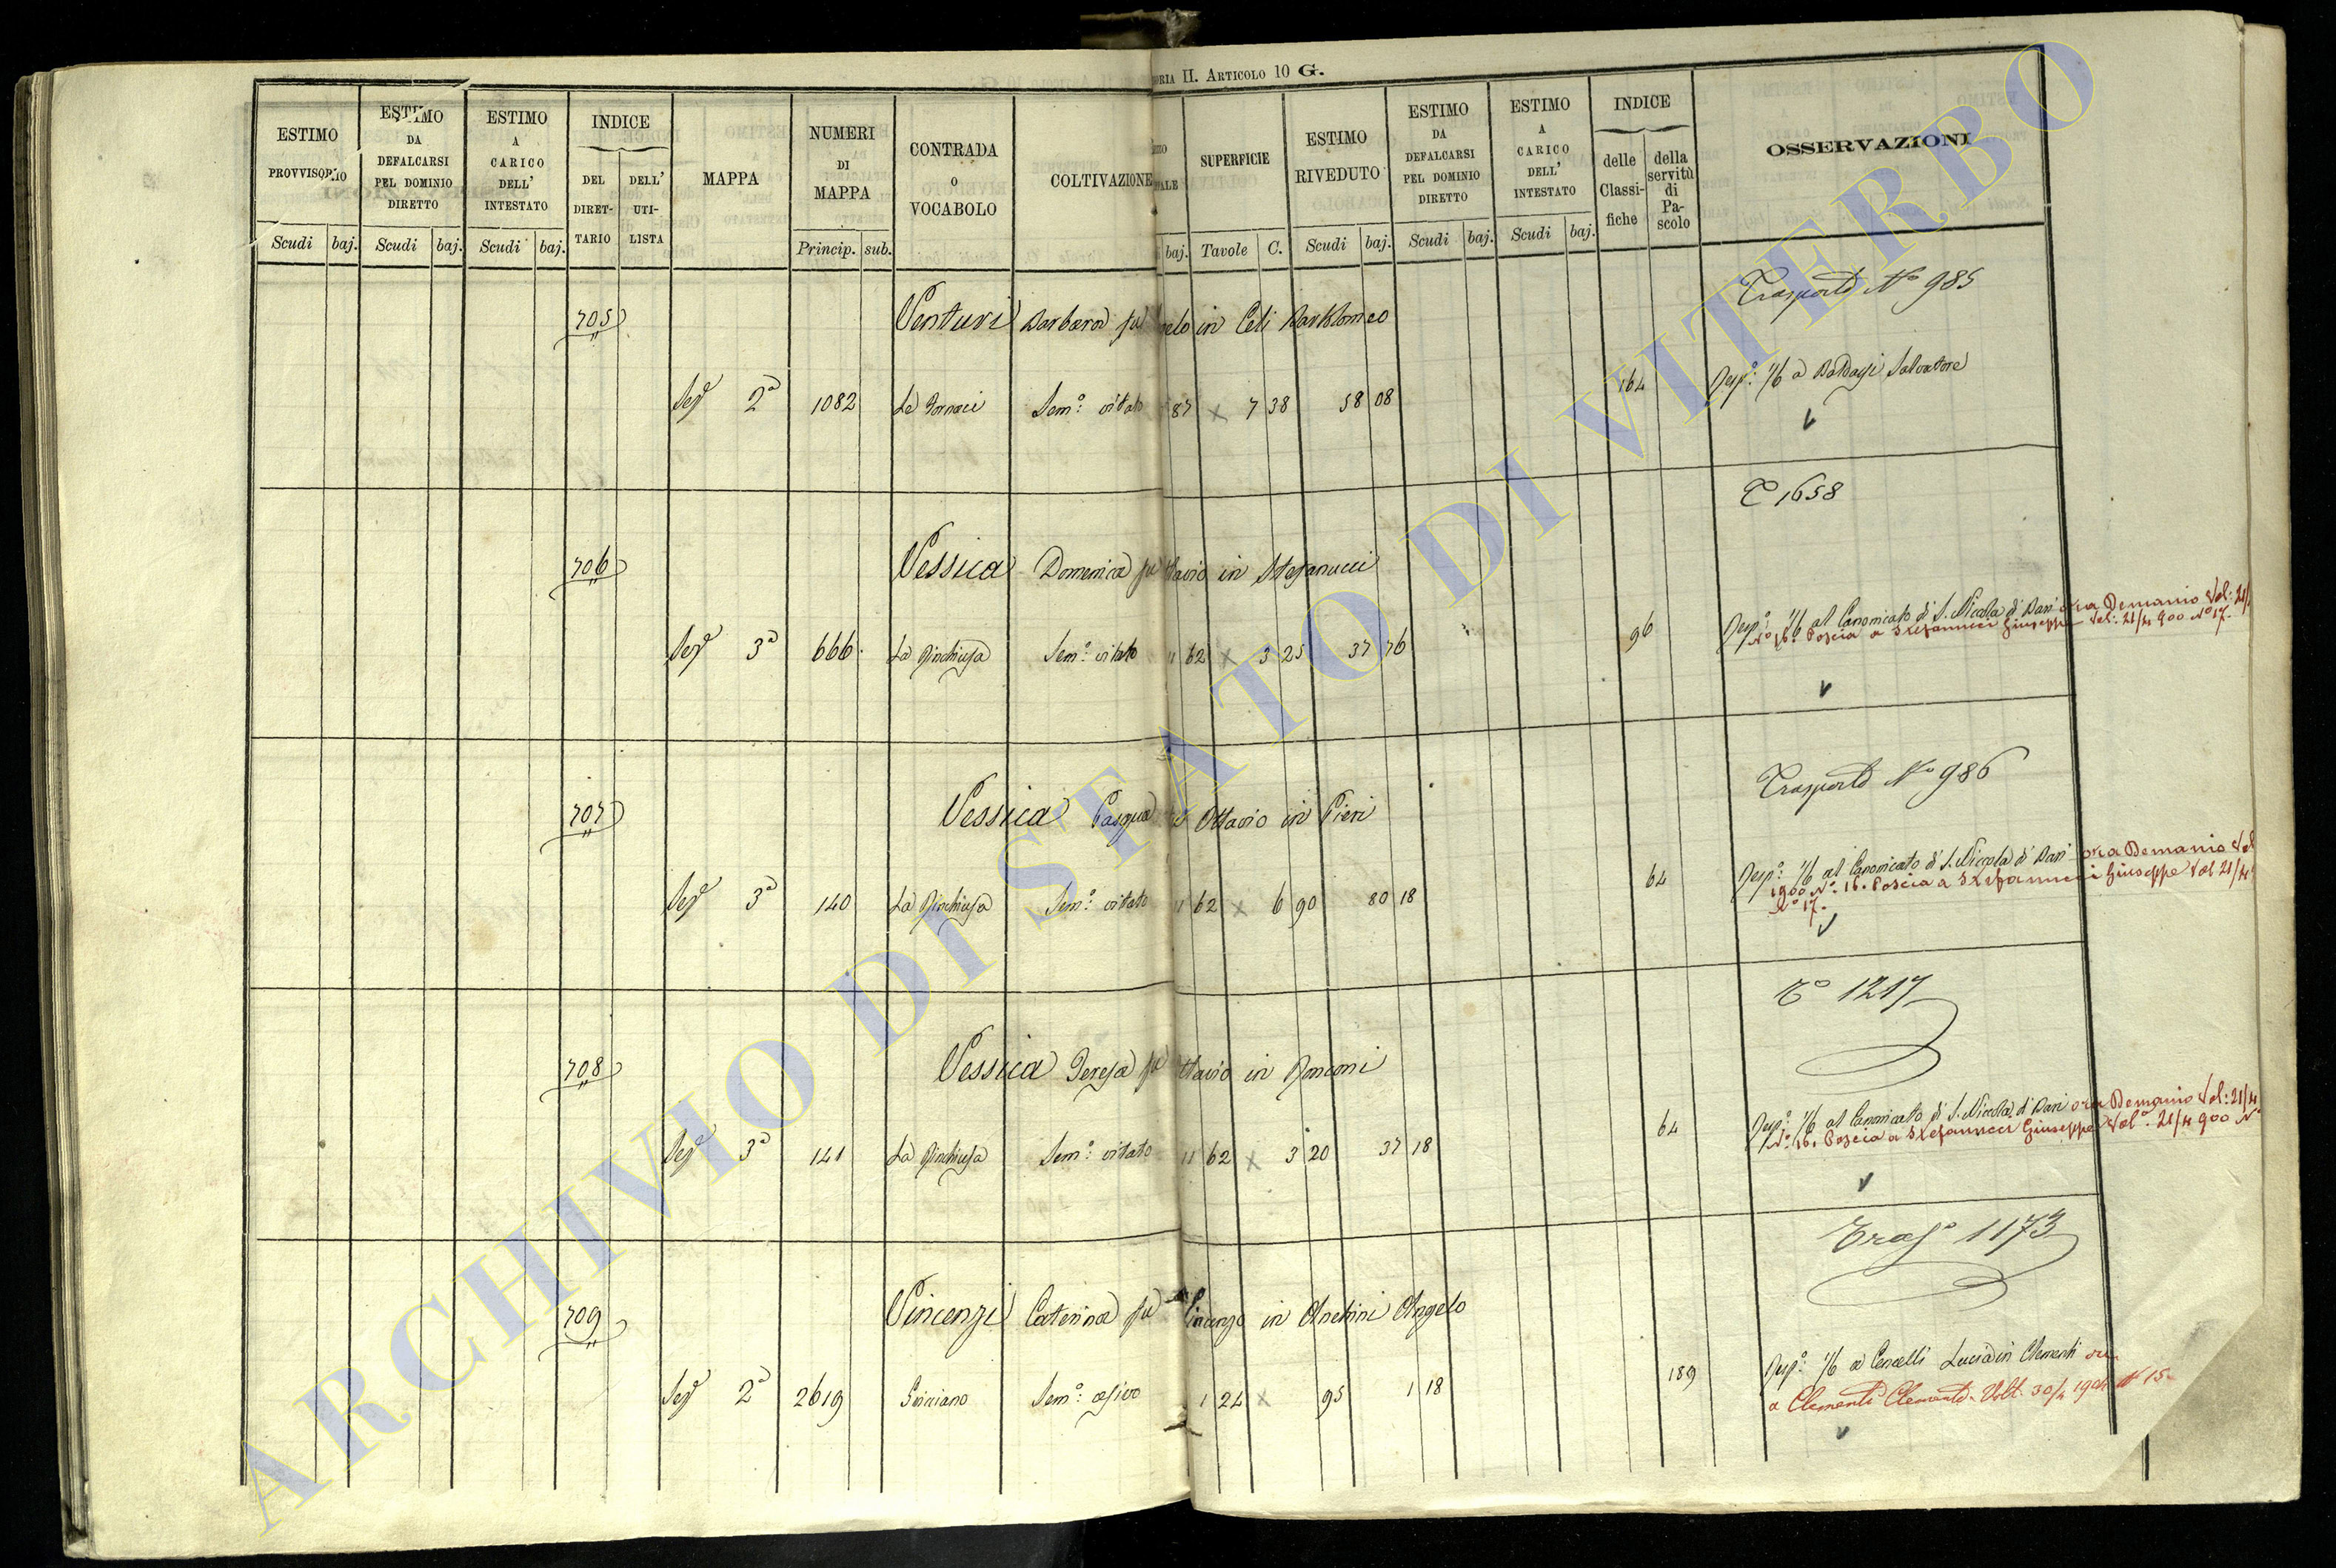 ORIA II. ARTICOLO 10 G.
ESTIMO PROVVISORIO
ESTIMO DA DEFALCARSI PEL DOMINIO DIRETTO
ESTIMO A CARICO DELL' INTESTATO
INDICE
DEL DIRET- TARIO
DELL' UTI- LISTA
MAPPA
NUMERI DI MAPPA
CONTRADA O VOCABOLO
COLTIVAZIONE
SUPERFICIE
ESTIMO RIVEDUTO
ESTIMO DA DEFALCARSI PEL DOMINIO DIRETTO
ESTIMO A CARICO DELL' INTESTATO
INDICE
delle Classi- fiche
della servitù di Pa- scolo
OSSERVAZIONI
Scudi baj. Scudi baj. Scudi baj. Princip. sub. baj. Tavole C. Scudi baj. Scudi baj. Scudi baj.
Trasporto No 985
705 Venturi Barbara fu gelo in Celi Bartolomeo
Sez 2a 1082 Le Fornaci Sem.o vitato 87 x 7 38 58 08 164 Resp.o 1/6 a Salvatore
T° 1658
706 Vessica Domenica fu ttavio in Stefanucci
Sez 3a 666 La Rinchiusa Sem.o vitato 11 62 x 3 25 37 76 96 Resp.o 1/6 al Canonicato di S. Nicola di Bari ora Demanio Vol: 21/
No 16. Poscia a Stefanucci Giuseppe Vol: 21/4 900 No 17.
Trasporto No 986
707 Vessica Pasqua fu Ottavio in Pieri
Sez 3a 140 La Rinchiusa Sem.o vitato 11 62 x 6 90 80 18 64 Resp.o 1/6 al Canonicato di S. Niccola di Bari ora Demanio Vol
1900 No. 16. Poscia a Stefanucci Giuseppe Vol 21/4
No 17.
T° 1217
708 Vessica Teresa fu ttavio in Ronconi
Sez 3a 141 La Rinchiusa Sem.o vitato 11 62 x 3 20 37 18 64 Resp.o 1/6 al Canonicato di S. Nicola di Bari ora Demanio Vol: 21/4
No 16. Poscia a Stefanucci Giuseppe Vol. 21/4 900 No
Trasp.o 1173
709 Vincenzi Caterina fu Vincenzo in Anetrini Angelo
Sez 2a 2619 Sem.o 1 24 x 95 1 18 189 Resp.o 1/6 a Cencelli Lucia in Clementi ora
a Clementi Clemente Volt. 30/4 No 15
ARCHIVIO DI STATO DI VITERBO